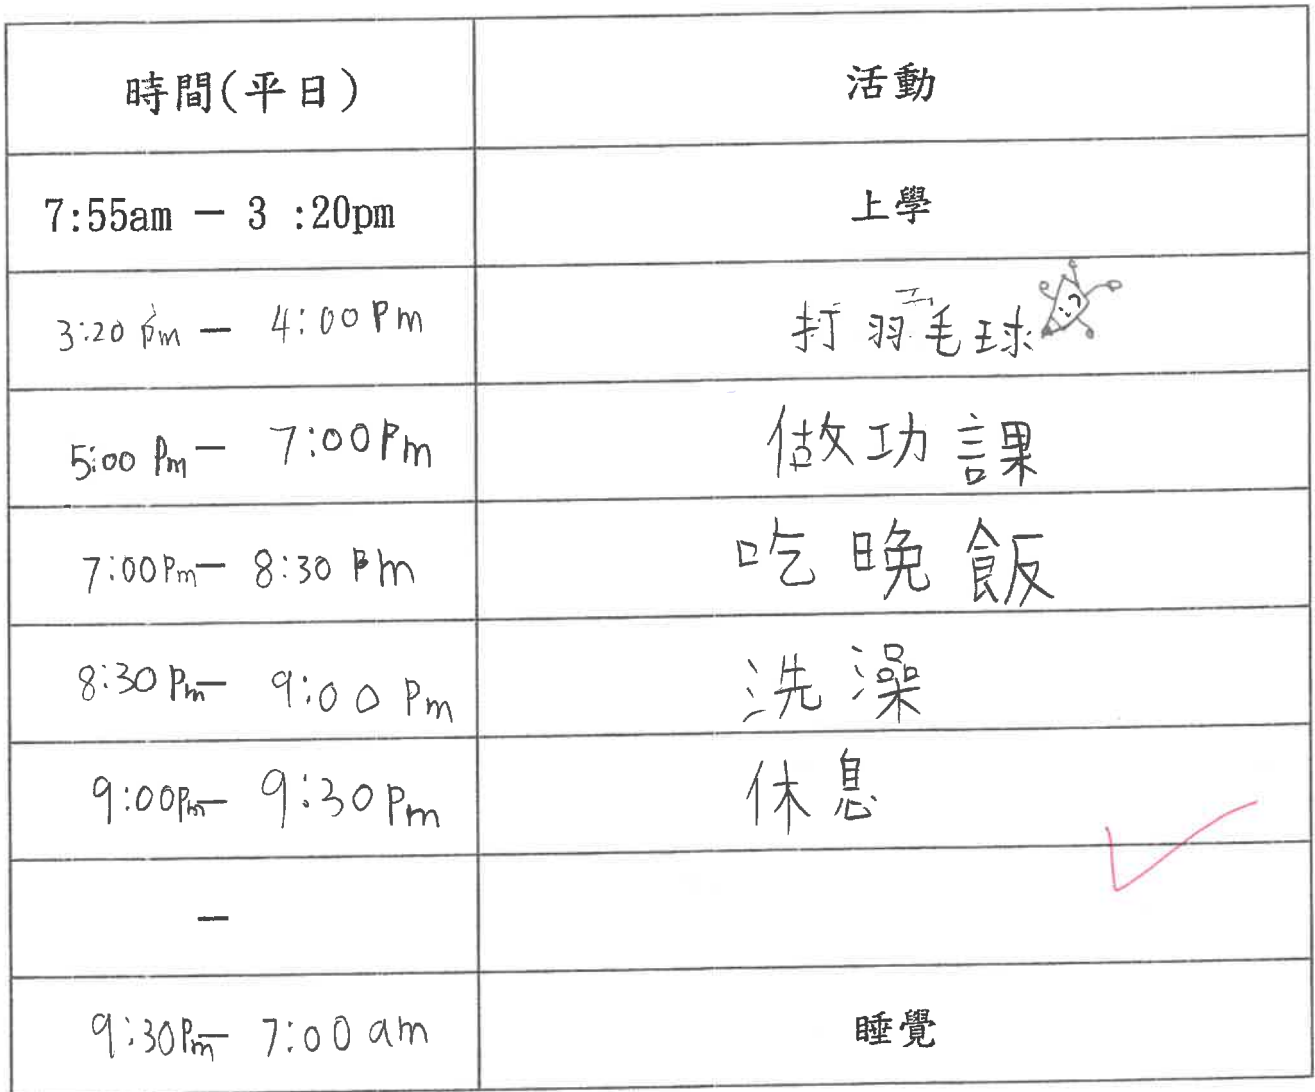 時間(平日) 活動
7:55am — 3 :20pm 上學
3:20 pm — 4:00 Pm 打羽毛球
5:00 Pm — 7:00 Pm 做功課
7:00 Pm — 8:30 Pm 吃晚飯
8:30 Pm — 9:00 Pm 洗澡
9:00 Pm — 9:30 Pm 休息
—
9:30 Pm — 7:00 am 睡覺